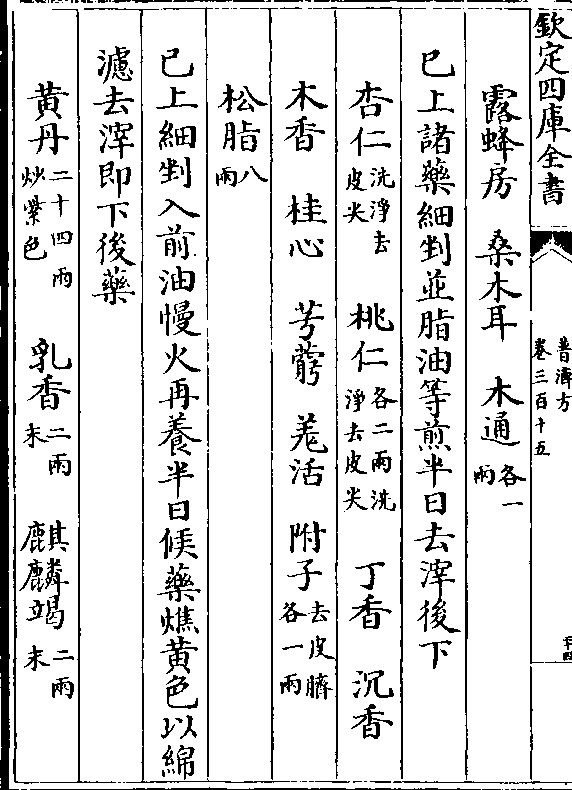 欽定四庫全書
普濟方
卷三百十五
露蜂房 桑木耳 木通各一兩
已上諸藥細剉並脂油等煎半日去滓後下
杏仁洗淨去皮尖 桃仁各二兩洗淨去皮尖 丁香 沉香
木香 桂心 芎藭 羌活 附子去皮臍各一兩
松脂八兩
已上細剉入前油慢火再養半日候藥燋黃色以綿
濾去滓即下後藥
黃丹二十四兩炒紫色 乳香二兩末 麒麟竭二兩末